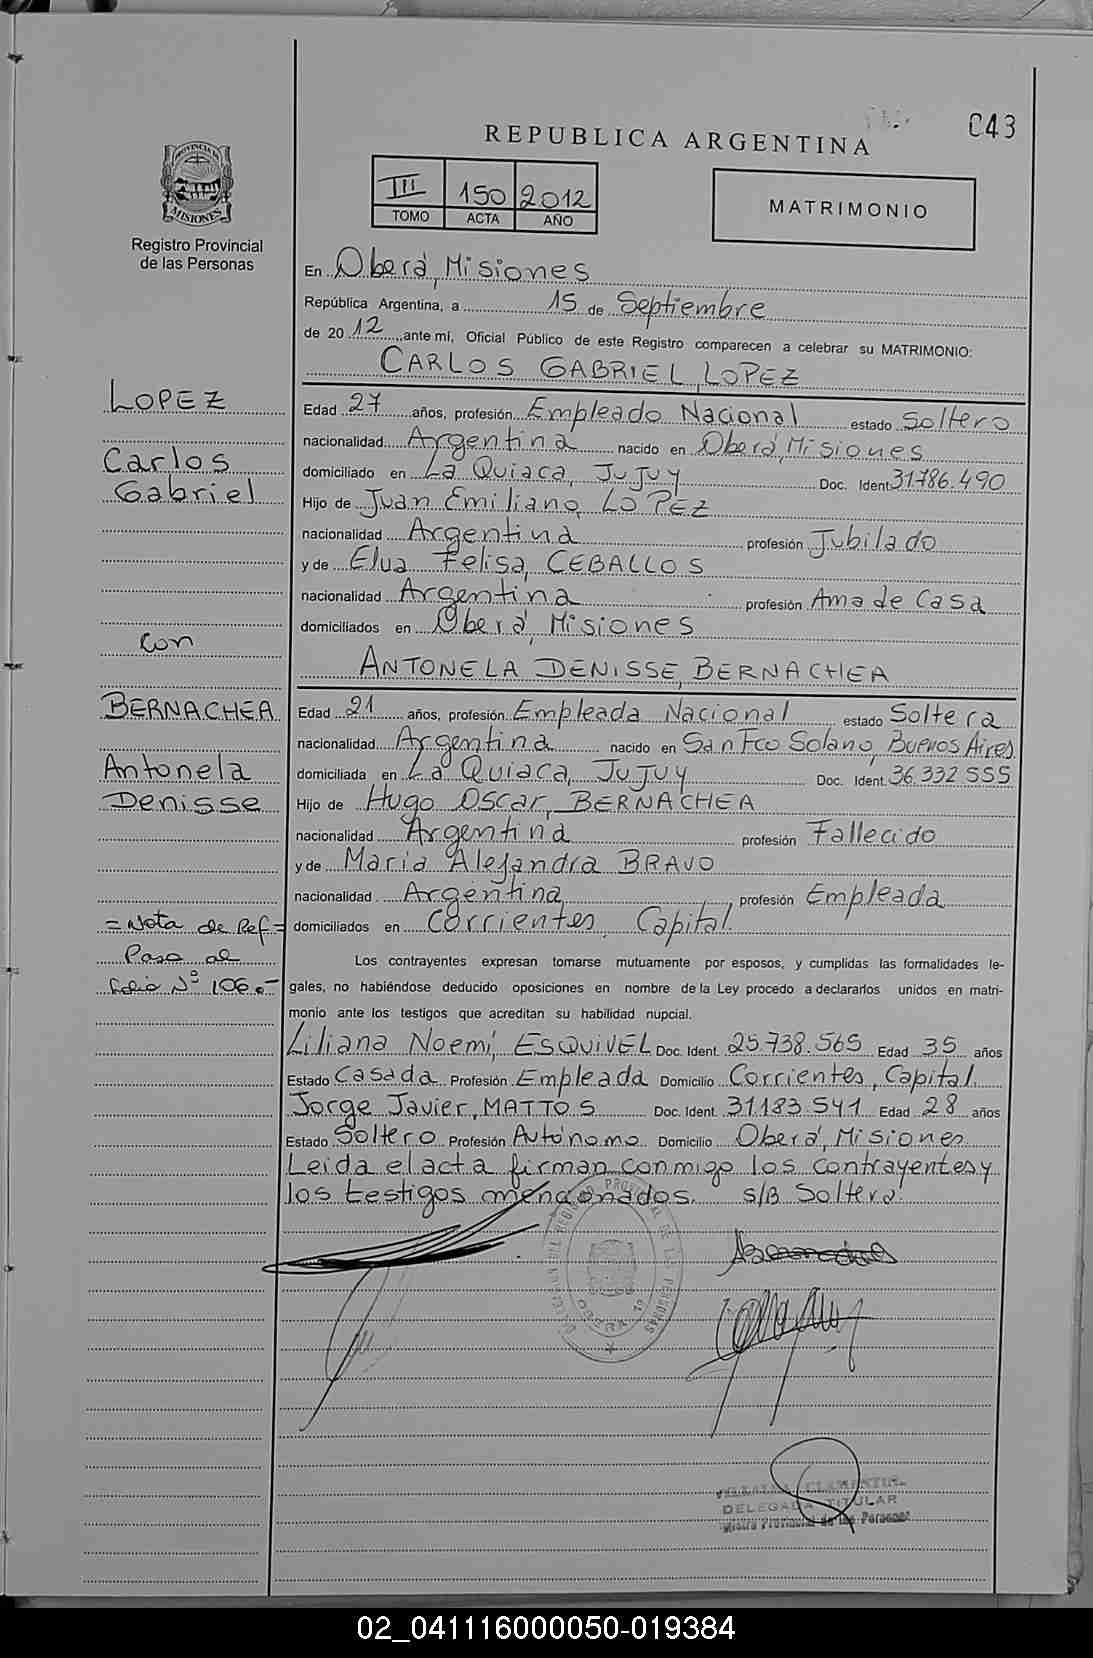 C43
REPUBLICA ARGENTINA
III 150 2012
TOMO ACTA AÑO
MATRIMONIO
PROVINCIA DE
MISIONES
Registro Provincial
de las Personas
En Oberá, Misiones
República Argentina, a 15 de Septiembre
de 20 12, ante mi, Oficial Público de este Registro comparecen a celebrar su MATRIMONIO:
CARLOS GABRIEL, LOPEZ
LOPEZ
Carlos
Gabriel
Edad 27 años, profesión Empleado Nacional estado Soltero
nacionalidad Argentina nacido en Oberá, Misiones
domiciliado en La Quiaca, Jujuy Doc. Ident. 31786.490
Hijo de Juan Emiliano, LOPEZ
nacionalidad Argentina profesión Jubilado
y de Elva Felisa, CEBALLOS
nacionalidad Argentina profesión Ama de Casa
domiciliados en Oberá, Misiones
con
ANTONELA DENISSE, BERNACHEA
BERNACHEA
Antonela
Denisse
Edad 21 años, profesión Empleada Nacional estado Soltera
nacionalidad Argentina nacido en San Fco Solano, Buenos Aires
domiciliada en La Quiaca, Jujuy Doc. Ident. 36.332555
Hijo de Hugo Oscar, BERNACHEA
nacionalidad Argentina profesión Fallecido
y de Maria Alejandra BRAVO
nacionalidad Argentina profesión Empleada
domiciliados en Corrientes, Capital.
= Nota de Ref =
Pasa al
Folio Nº 106.-
Los contrayentes expresan tomarse mutuamente por esposos, y cumplidas las formalidades le-
gales, no habiéndose deducido oposiciones en nombre de la Ley procedo a declararlos unidos en matri-
monio ante los testigos que acreditan su habilidad nupcial.
Liliana Noemí, ESQUIVEL Doc. Ident. 25.738.565 Edad 35 años
Estado Casada Profesión Empleada Domicilio Corrientes, Capital.
Jorge Javier, MATTOS Doc. Ident. 31183.541 Edad 28 años
Estado Soltero Profesión Autónomo Domicilio Oberá, Misiones
Leida el acta firman conmigo los contrayentes y
los testigos mencionados. S/B Soltera.
REGISTRO PROVINCIAL DE LAS PERSONAS
OBERA
DELEGADA TITULAR
de las Personas
02_041116000050-019384